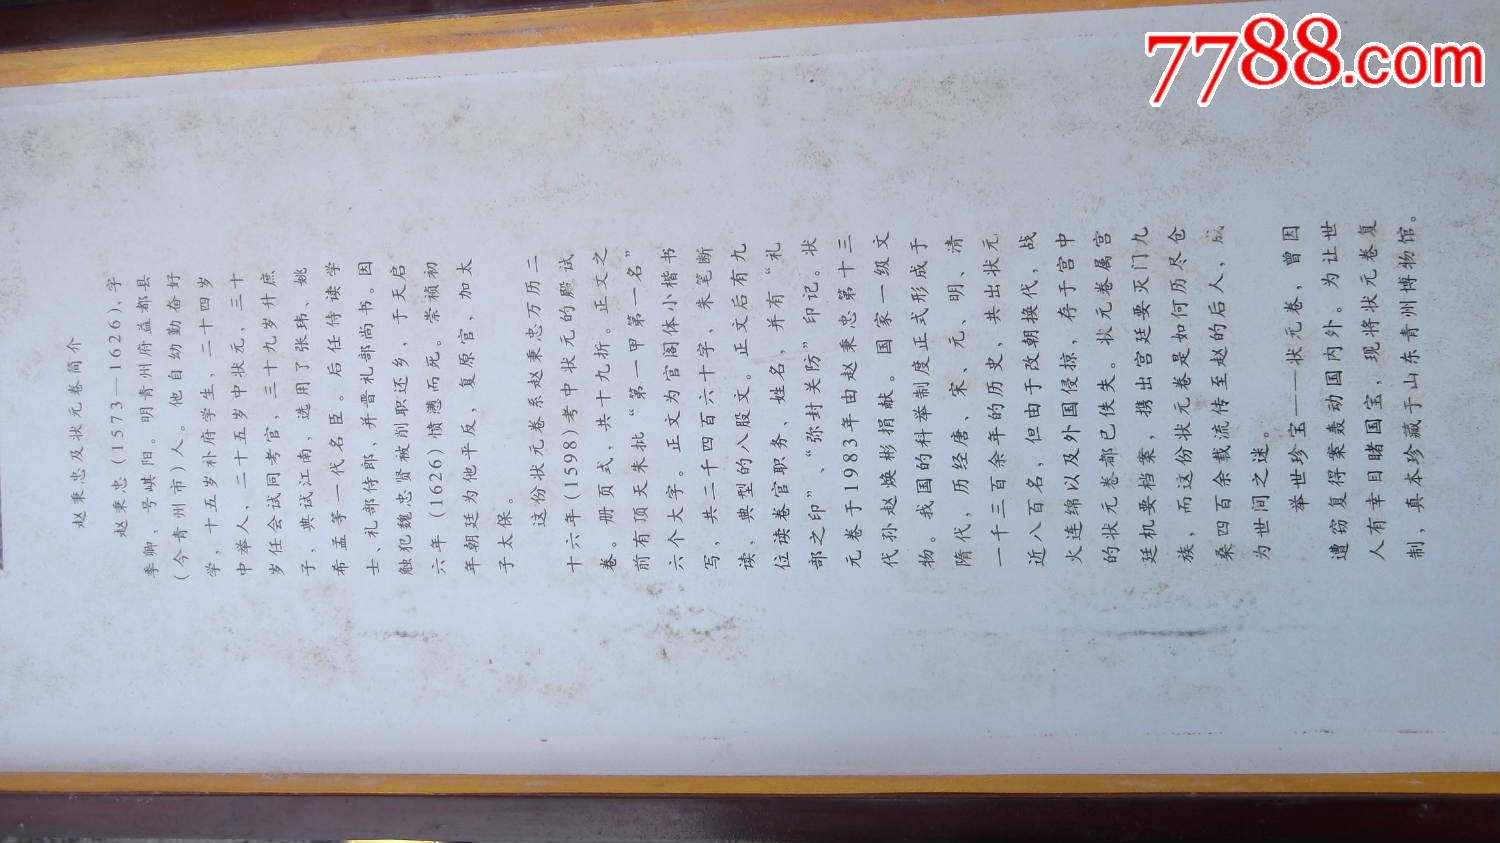 7788.com
赵秉忠及状元卷简介
赵秉忠(1573—1626),字
季卿，号𡹘阳。明青州府益都县
(今青州市)人。他自幼勤奋好
学，十五岁补府学生，二十四岁
中举人、二十五岁中状元、三十
岁任会试同考官，三十九岁升庶
子，典试江南，选用了张玮、姚
希孟等一代名臣。后任侍读学
士、礼部侍郎，并晋礼部尚书。因
触犯魏忠贤被削职还乡，于天启
六年(1626)愤懑而死。崇祯初
年朝廷为他平反，复原官，加太
子太保。
这份状元卷系赵秉忠万历二
十六年(1598)考中状元的殿试
卷。册页式、共十九折。正文之
前有顶天朱批“第一甲第一名”
六个大字。正文为官阁体小楷书
写，共二千四百六十字，朱笔断
读，典型的八股文。正文后有九
位读卷官职务、姓名，并有“礼
部之印”、“弥封关防”印记。状
元卷于1983年由赵秉忠第十三
代孙赵焕彬捐献。国家一级文
物。我国的科举制度正式形成于
隋代，历经唐、宋、元、明、清
一千三百余年的历史，共出状元
近八百名，但由于改朝换代，战
火连绵以及外国侵掠，存于宫中
的状元卷都已佚失。状元卷属宫
廷机要档案，携出宫廷要灭门九
族，而这份状元卷是如何历尽仓
桑四百余载流传至赵的后人，成
为世间之谜。
举世珍宝——状元卷，曾因
遭窃复得案轰动国内外。为让世
人有幸目睹国宝，现将状元卷复
制，真本珍藏于山东青州博物馆。